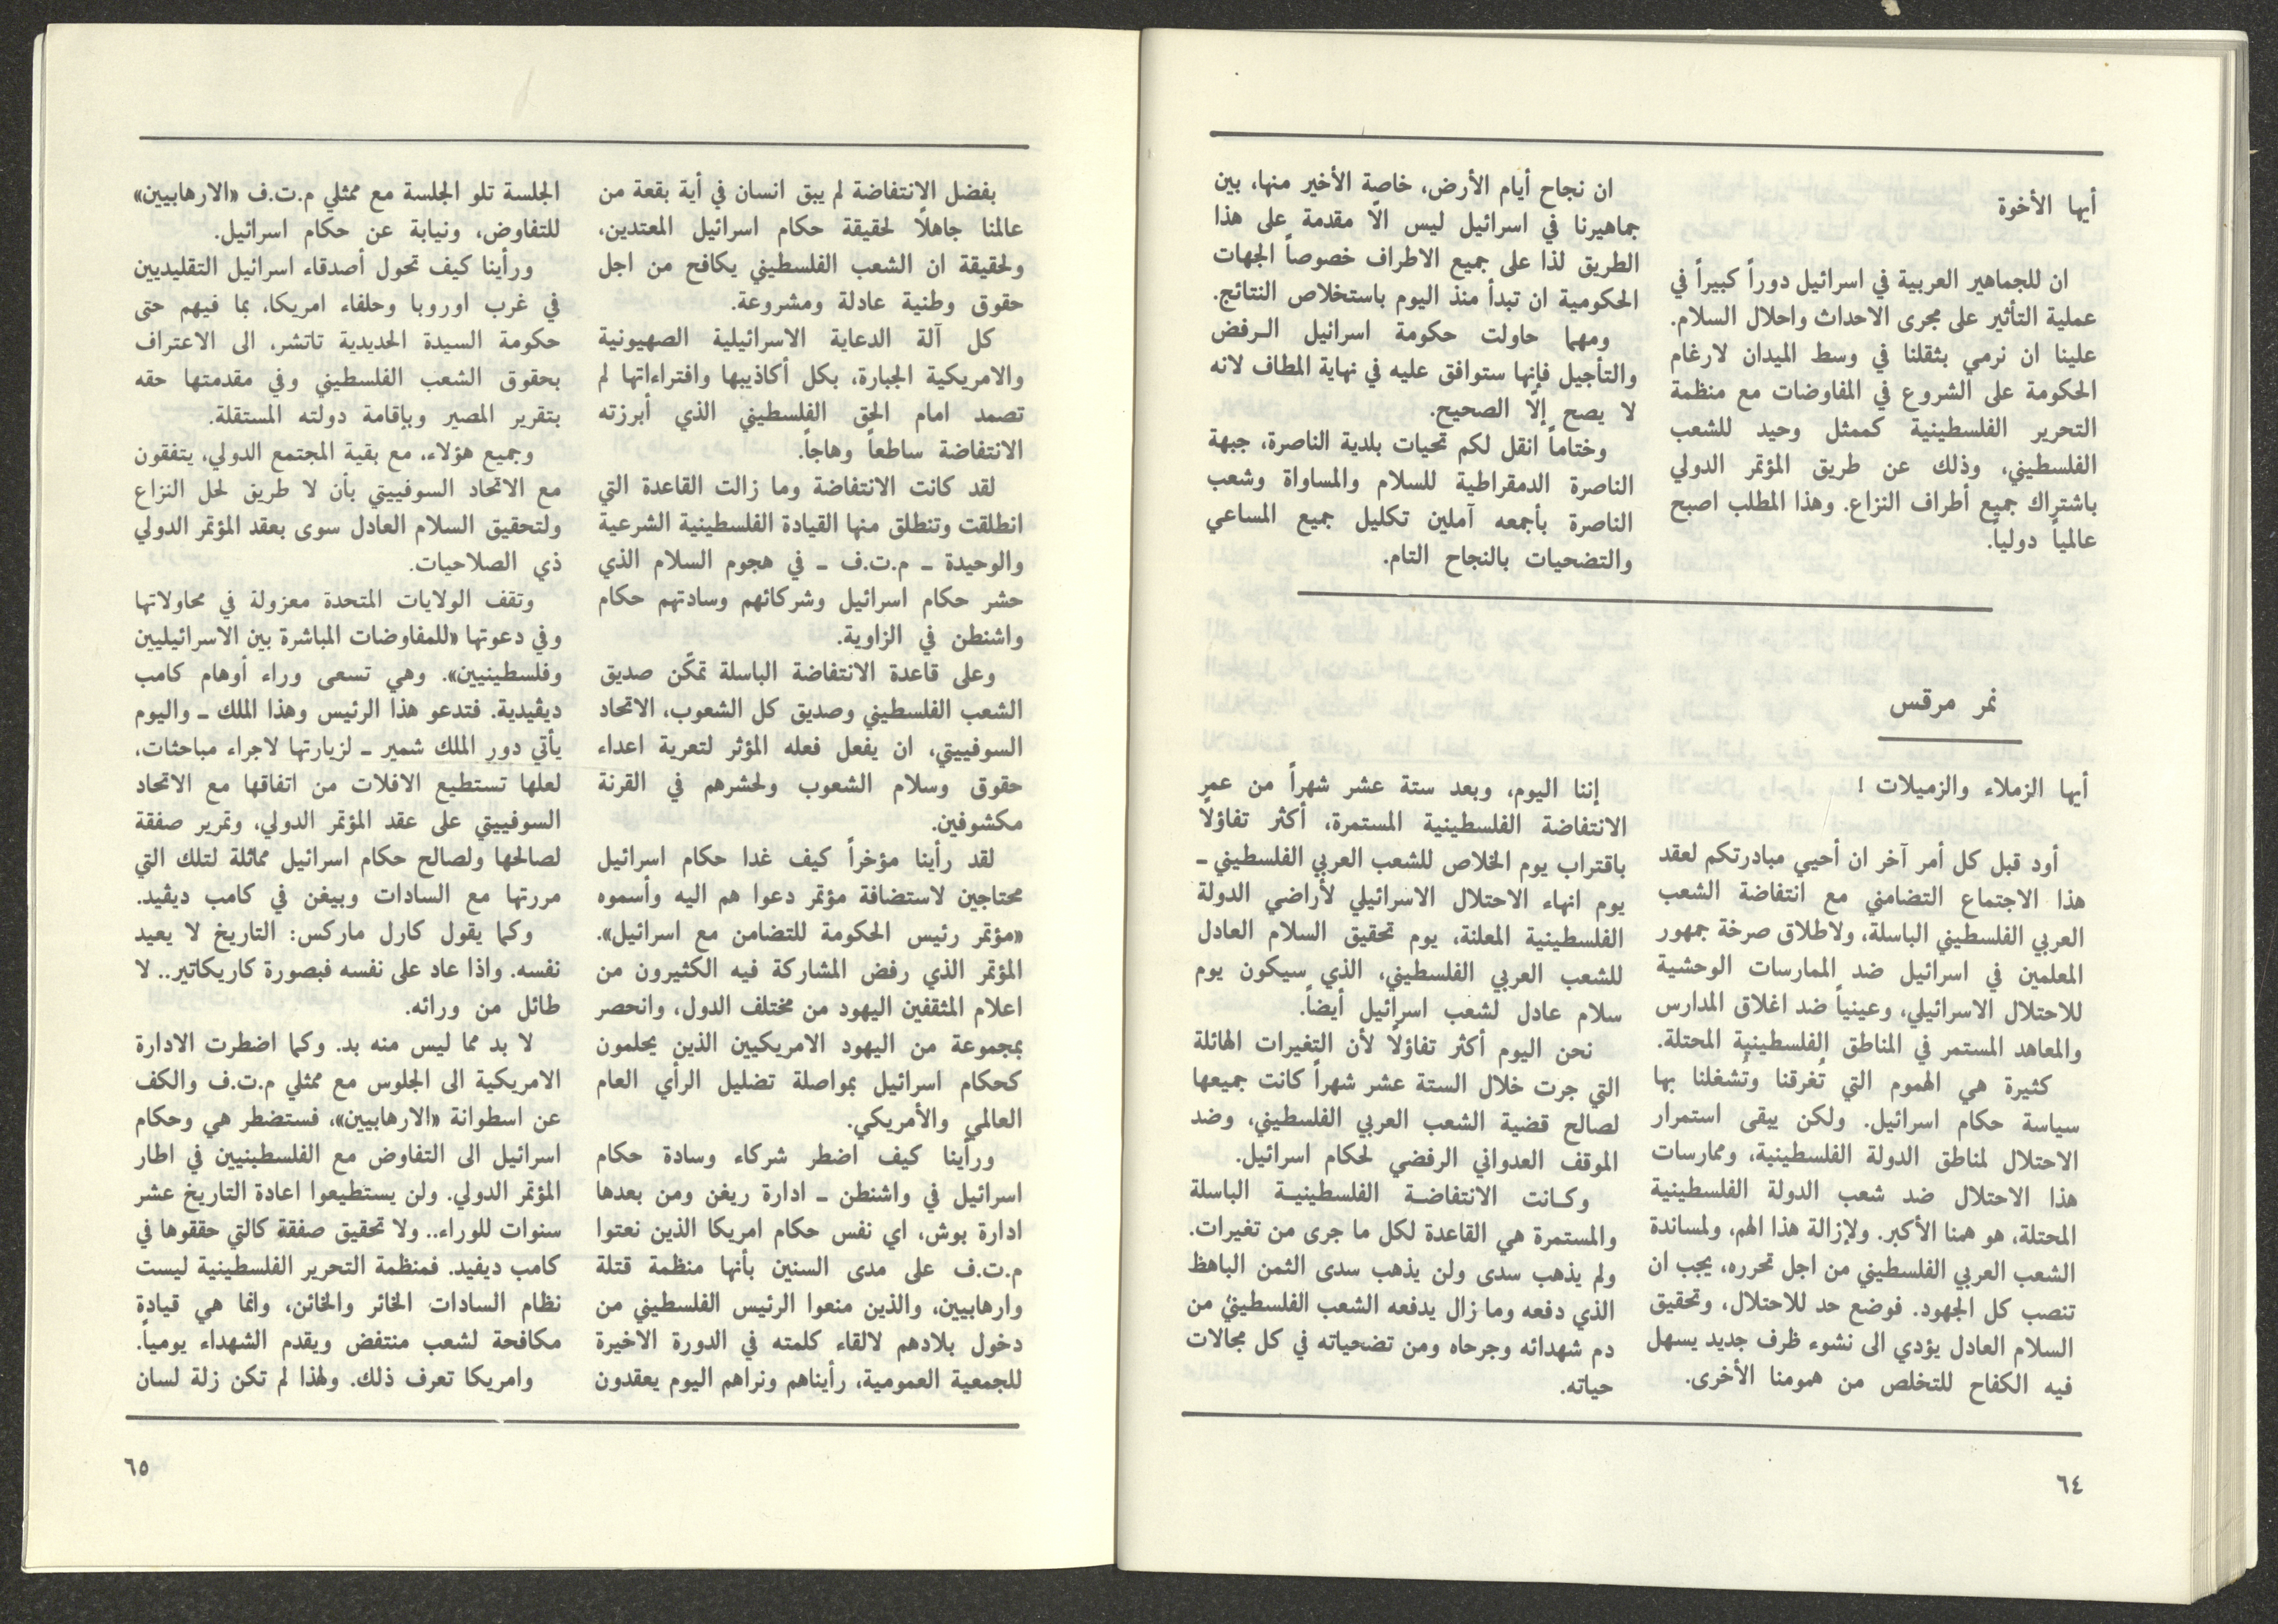 أيها الأخوة
ان للجماهير العربية في اسرائيل دوراً كبيراً في
عملية التأثير على مجرى الاحداث واحلال السلام.
علينا ان نرمي بثقلنا في وسط الميدان لارغام
الحكومة على الشروع في المفاوضات مع منظمة
التحرير الفلسطينية كممثل وحيد للشعب
الفلسطيني، وذلك عن طريق المؤتمر الدولي
باشتراك جميع أطراف النزاع. وهذا المطلب اصبح
عالمياً دولياً.
ان نجاح أيام الأرض، خاصة الأخير منها، بين
جماهيرنا في اسرائيل ليس الّا مقدمة على هذا
الطريق لذا على جميع الاطراف خصوصاً الجهات
الحكومية ان تبدأ منذ اليوم باستخلاص النتائج.
ومهما حاولت حكومة اسرائيل الرفض
والتأجيل فإنها ستوافق عليه في نهاية المطاف لانه
لا يصح إلّا الصحيح.
وختاماً انقل لكم تحيات بلدية الناصرة، جبهة
الناصرة الدمقراطية للسلام والمساواة وشعب
الناصرة بأجمعه آملين تكليل جميع المساعي
والتضحيات بالنجاح التام.
نمر مرقس
أيها الزملاء والزميلات !
أود قبل كل أمر آخر ان أحيي مبادرتكم لعقد
هذا الاجتماع التضامني مع انتفاضة الشعب
العربي الفلسطيني الباسلة، ولاطلاق صرخة جمهور
المعلمين في اسرائيل ضد الممارسات الوحشية
للاحتلال الاسرائيلي، وعينياً ضد اغلاق المدارس
والمعاهد المستمر في المناطق الفلسطينية المحتلة.
كثيرة هي الهموم التي تُغرقنا وتُشغلنا بها
سياسة حكام اسرائيل. ولكن يبقى استمرار
الاحتلال لمناطق الدولة الفلسطينية، وممارسات
هذا الاحتلال ضد شعب الدولة الفلسطينية
المحتلة، هو همنا الأكبر. ولإزالة هذا الهم، ولمساندة
الشعب العربي الفلسطيني من اجل تحرره، يجب ان
تنصب كل الجهود. فوضع حد للاحتلال، وتحقيق
السلام العادل يؤدي الى نشوء ظرف جديد يسهل
فيه الكفاح للتخلص من همومنا الأخرى.
إننا اليوم، وبعد ستة عشر شهراً من عمر
الانتفاضة الفلسطينية المستمرة، أكثر تفاؤلًا
باقتراب يوم الخلاص للشعب العربي الفلسطيني ـ
يوم انهاء الاحتلال الاسرائيلي لأراضي الدولة
الفلسطينية المعلنة، يوم تحقيق السلام العادل
للشعب العربي الفلسطيني، الذي سيكون يوم
سلام عادل لشعب اسرائيل أيضاً.
نحن اليوم أكثر تفاؤلًا لأن التغيرات الهائلة
التي جرت خلال الستة عشر شهراً كانت جميعها
لصالح قضية الشعب العربي الفلسطيني، وضد
الموقف العدواني الرفضي لحكام اسرائيل.
وكانت الانتفاضة الفلسطينية الباسلة
والمستمرة هي القاعدة لكل ما جرى من تغيرات.
ولم يذهب سدى ولن يذهب سدى الثمن الباهظ
الذي دفعه وما زال يدفعه الشعب الفلسطيني من
دم شهدائه وجرحاه ومن تضحياته في كل مجالات
حياته.
٦٤
بفضل الانتفاضة لم يبق انسان في أية بقعة من
عالمنا جاهلًا لحقيقة حكام اسرائيل المعتدين،
ولحقيقة ان الشعب الفلسطيني يكافح من اجل
حقوق وطنية عادلة ومشروعة.
كل آلة الدعاية الاسرائيلية الصهيونية
والامريكية الجبارة، بكل أكاذيبها وافتراءاتها لم
تصمد امام الحق الفلسطيني الذي أبرزته
الانتفاضة ساطعاً وهاجاً.
لقد كانت الانتفاضة وما زالت القاعدة التي
انطلقت وتنطلق منها القيادة الفلسطينية الشرعية
والوحيدة ـ م.ت.ف ـ في هجوم السلام الذي
حشر حكام اسرائيل وشركائهم وسادتهم حكام
واشنطن في الزاوية.
وعلى قاعدة الانتفاضة الباسلة تمكّن صديق
الشعب الفلسطيني وصديق كل الشعوب، الاتحاد
السوفييتي، ان يفعل فعله المؤثر لتعرية اعداء
حقوق وسلام الشعوب ولحشرهم في القرنة
مكشوفين.
لقد رأينا مؤخراً كيف غدا حكام اسرائيل
محتاجين لاستضافة مؤتمر دعوا هم اليه وأسموه
«مؤتمر رئيس الحكومة للتضامن مع اسرائيل».
المؤتمر الذي رفض المشاركة فيه الكثيرون من
اعلام المثقفين اليهود من مختلف الدول، وانحصر
بمجموعة من اليهود الامريكيين الذين يحلمون
كحكام اسرائيل بمواصلة تضليل الرأي العام
العالمي والأمريكي.
ورأينا كيف اضطر شركاء وسادة حكام
اسرائيل في واشنطن ـ ادارة ريغن ومن بعدها
ادارة بوش، اي نفس حكام امريكا الذين نعتوا
م.ت.ف على مدى السنين بأنها منظمة قتلة
وارهابيين، والذين منعوا الرئيس الفلسطيني من
دخول بلادهم لالقاء كلمته في الدورة الاخيرة
للجمعية العمومية، رأيناهم ونراهم اليوم يعقدون
الجلسة تلو الجلسة مع ممثلي م.ت.ف «الارهابيين»
للتفاوض، ونيابة عن حكام اسرائيل.
ورأينا كيف تحول أصدقاء اسرائيل التقليديين
في غرب اوروبا وحلفاء امريكا، بما فيهم حتى
حكومة السيدة الحديدية تاتشر، الى الاعتراف
بحقوق الشعب الفلسطيني وفي مقدمتها حقه
بتقرير المصير وبإقامة دولته المستقلة.
وجميع هؤلاء، مع بقية المجتمع الدولي، يتفقون
مع الاتحاد السوفييتي بأن لا طريق لحل النزاع
ولتحقيق السلام العادل سوى بعقد المؤتمر الدولي
ذي الصلاحيات.
وتقف الولايات المتحدة معزولة في محاولاتها
وفي دعوتها «للمفاوضات المباشرة بين الاسرائيليين
وفلسطينيين». وهي تسعى وراء أوهام كامب
ديڤيدية. فتدعو هذا الرئيس وهذا الملك ـ واليوم
يأتي دور الملك شمير ـ لزيارتها لاجراء مباحثات،
لعلها تستطيع الافلات من اتفاقها مع الاتحاد
السوفييتي على عقد المؤتمر الدولي، وتمرير صفقة
لصالحها ولصالح حكام اسرائيل مماثلة لتلك التي
مررتها مع السادات وبيغن في كامب ديڤيد.
وكما يقول كارل ماركس: التاريخ لا يعيد
نفسه. واذا عاد على نفسه فبصورة كاريكاتير.. لا
طائل من ورائه.
لا بد مما ليس منه بد. وكما اضطرت الادارة
الامريكية الى الجلوس مع ممثلي م.ت.ف والكف
عن اسطوانة «الارهابيين»، فستضطر هي وحكام
اسرائيل الى التفاوض مع الفلسطينيين في اطار
المؤتمر الدولي. ولن يستطيعوا اعادة التاريخ عشر
سنوات للوراء.. ولا تحقيق صفقة كالتي حققوها في
كامب ديفيد. فمنظمة التحرير الفلسطينية ليست
نظام السادات الخائر والخائن، وانما هي قيادة
مكافحة لشعب منتفض ويقدم الشهداء يومياً.
وامريكا تعرف ذلك. ولهذا لم تكن زلة لسان
٦٥